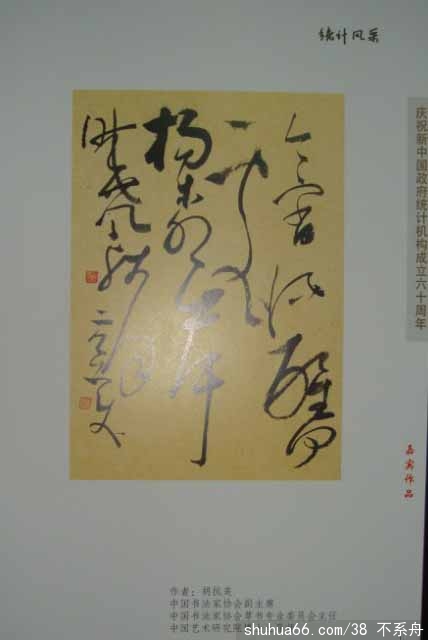 统计风采
今宵酒醒何
处
杨柳岸
晓风残月
庆祝新中国政府统计机构成立六十周年
嘉宾作品
作者：胡抗美
中国书法家协会副主席
中国书法家协会草书专业委员会主任
中国艺术研究院
shuhua66.com/38 不系舟